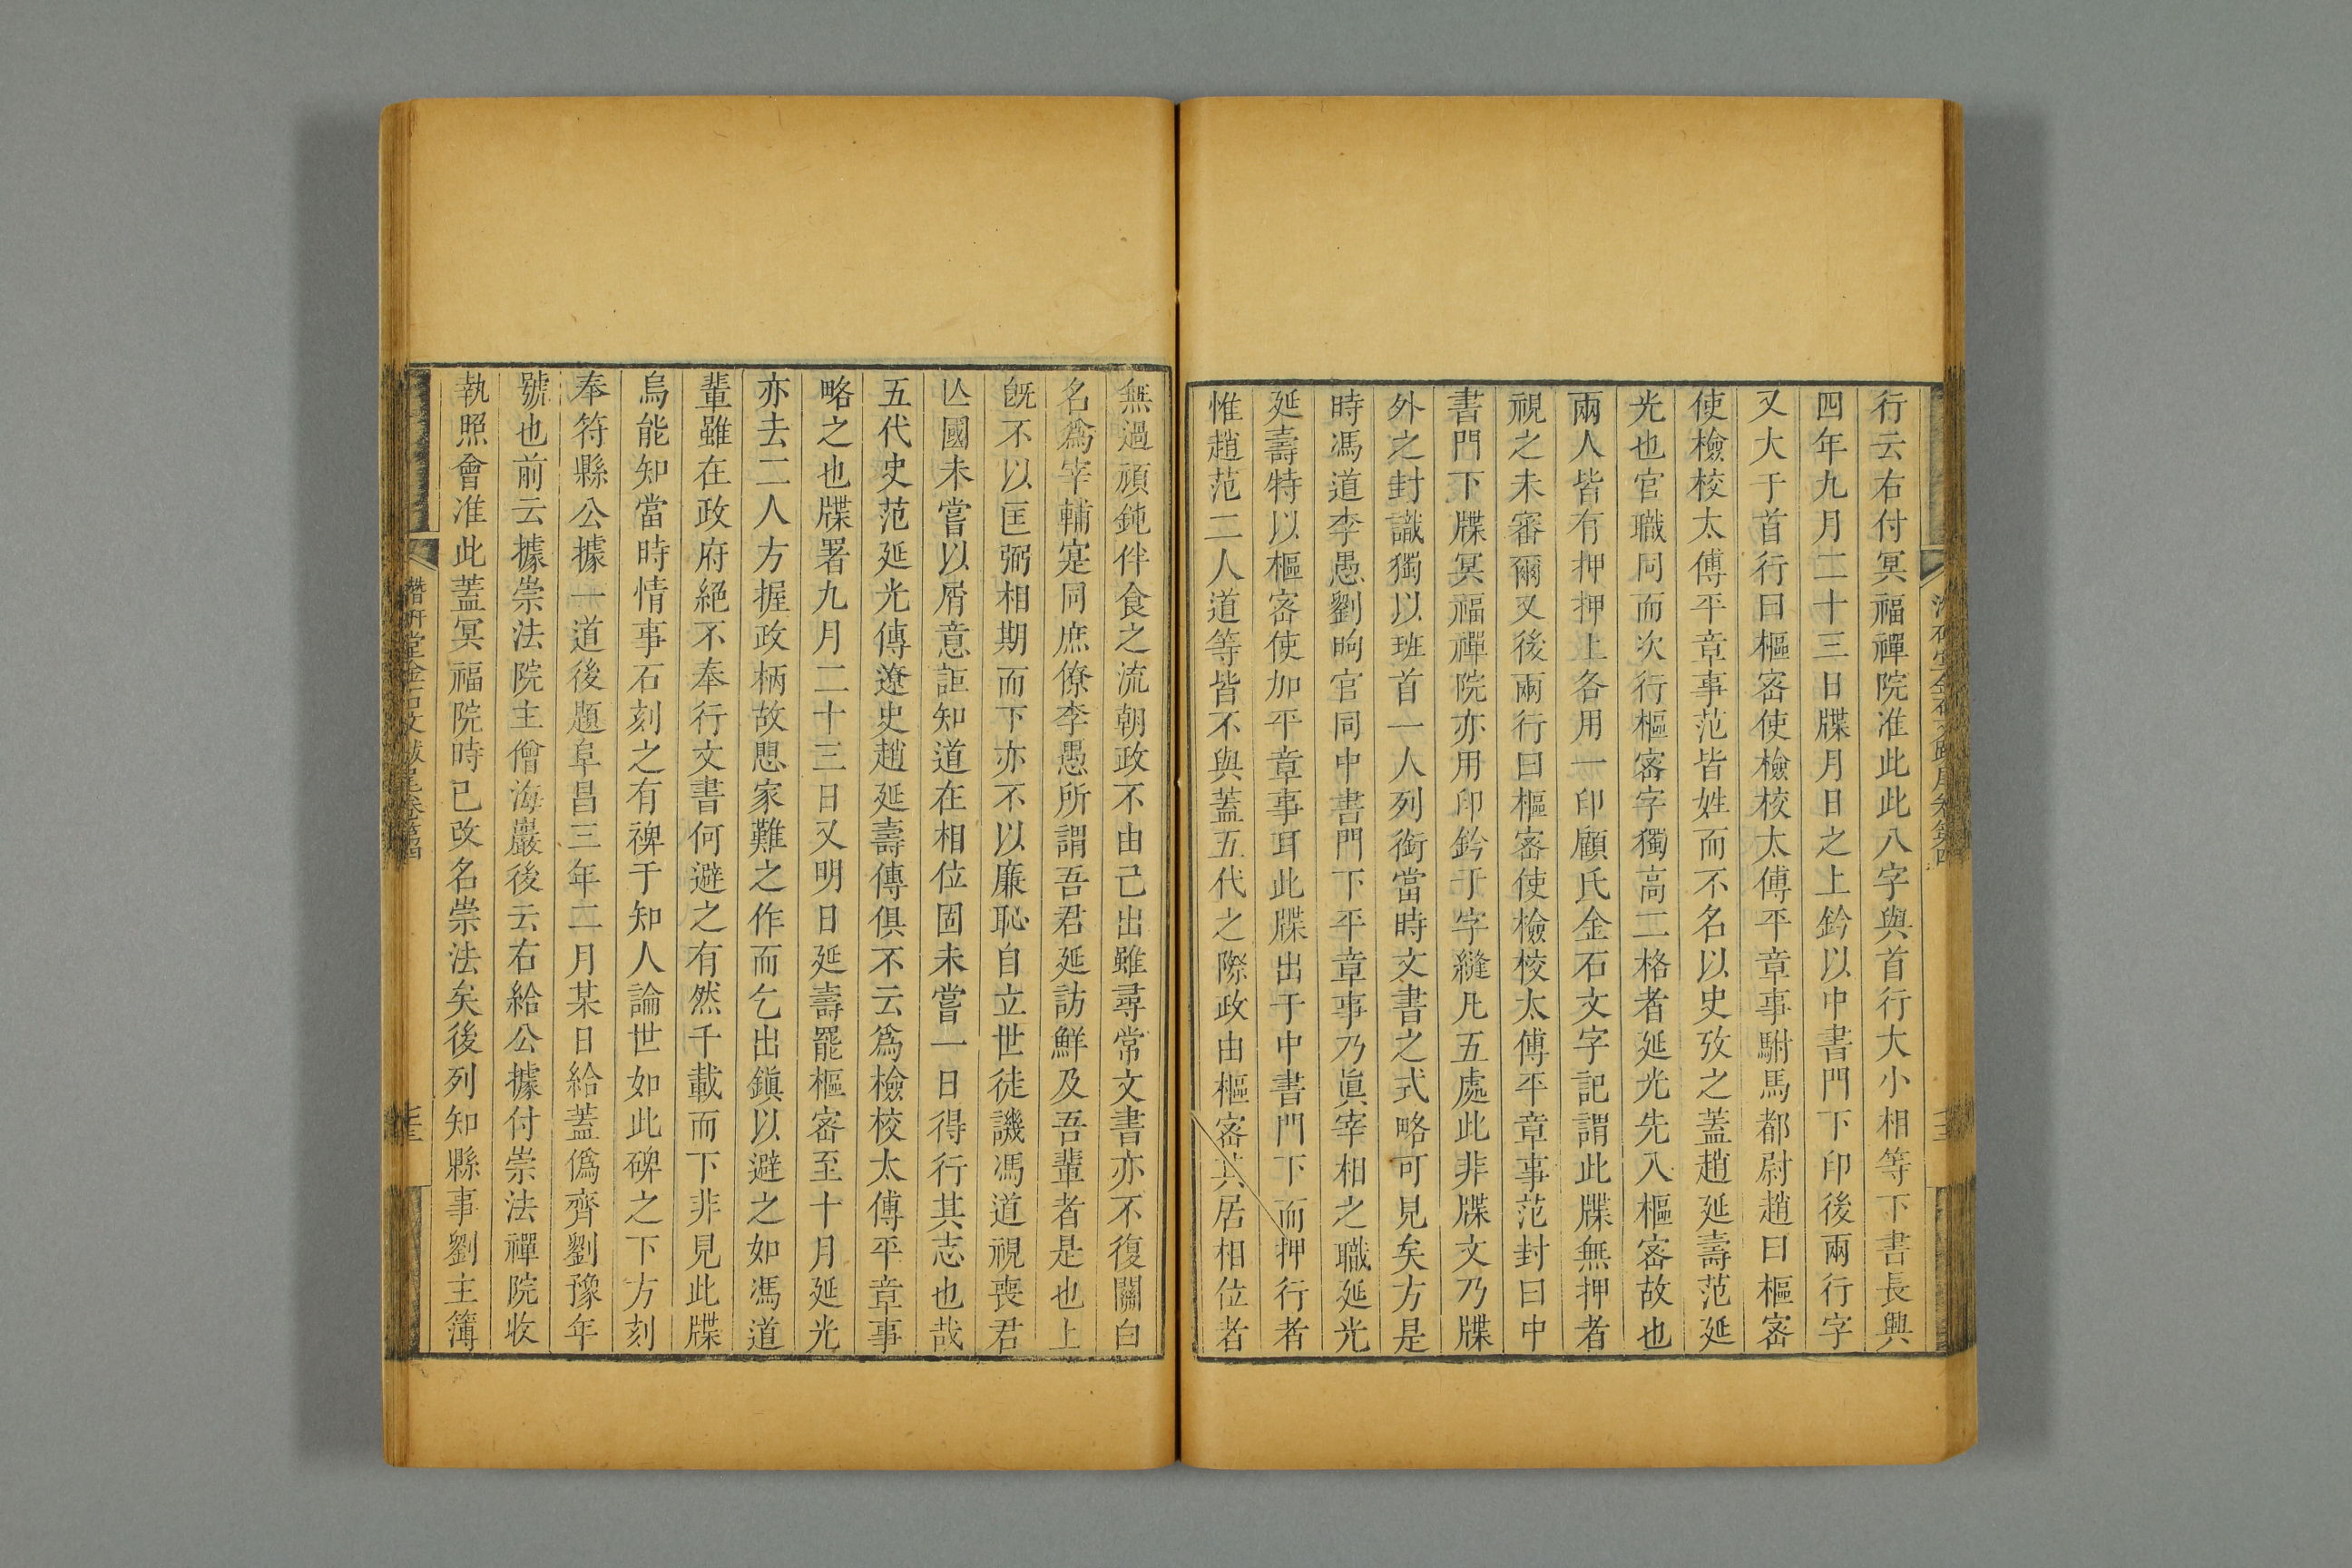 行云右付冥福禪院准此此八字與首行大小相等下書長興
四年九月二十三日牒月日之上鈐以中書門下印後兩行字
又大于首行曰樞密使檢校太傅平章事駙馬都尉趙曰樞密
使檢校太傅平章事范皆姓而不名以史攷之蓋趙延壽范延
光也官職同而次行樞密字獨高二格者延光先入樞密故也
兩人皆有押押上各用一印顧氏金石文字記謂此牒無押者
視之未審爾又後兩行曰樞密使檢校太傅平章事范封曰中
書門下牒冥福禪院亦用印鈐于字縫凡五處此非牒文乃牒
外之封識獨以班首一人列銜當時文書之式略可見矣方是
時馮道李愚劉昫官同中書門下平章事乃眞宰相之職延光
延壽特以樞密使加平章事耳此牒出于中書門下而押行者
惟趙范二人道等皆不與蓋五代之際政由樞密其居相位者
無過頑鈍伴食之流朝政不由己出雖尋常文書亦不復關白
名爲宰輔寔同庶僚李愚所謂吾君延訪鮮及吾輩者是也上
旣不以匡弼相期而下亦不以廉恥自立世徒譏馮道視喪君
亾國未嘗以屑意詎知道在相位固未嘗一日得行其志也哉
五代史范延光傳遼史趙延壽傳俱不云爲檢校太傅平章事
略之也牒署九月二十三日又明日延壽罷樞密至十月延光
亦去二人方握政柄故思家難之作而乞出鎭以避之如馮道
輩雖在政府絕不奉行文書何避之有然千載而下非見此牒
烏能知當時情事石刻之有裨于知人論世如此碑之下方刻
奉符縣公據一道後題阜昌三年二月某日給蓋僞齊劉豫年
號也前云據崇法院主僧海巖後云右給公據付崇法禪院收
執照會准此蓋冥福院時已改名崇法矣後列知縣事劉主簿
潛硏堂金石文跋尾卷第四